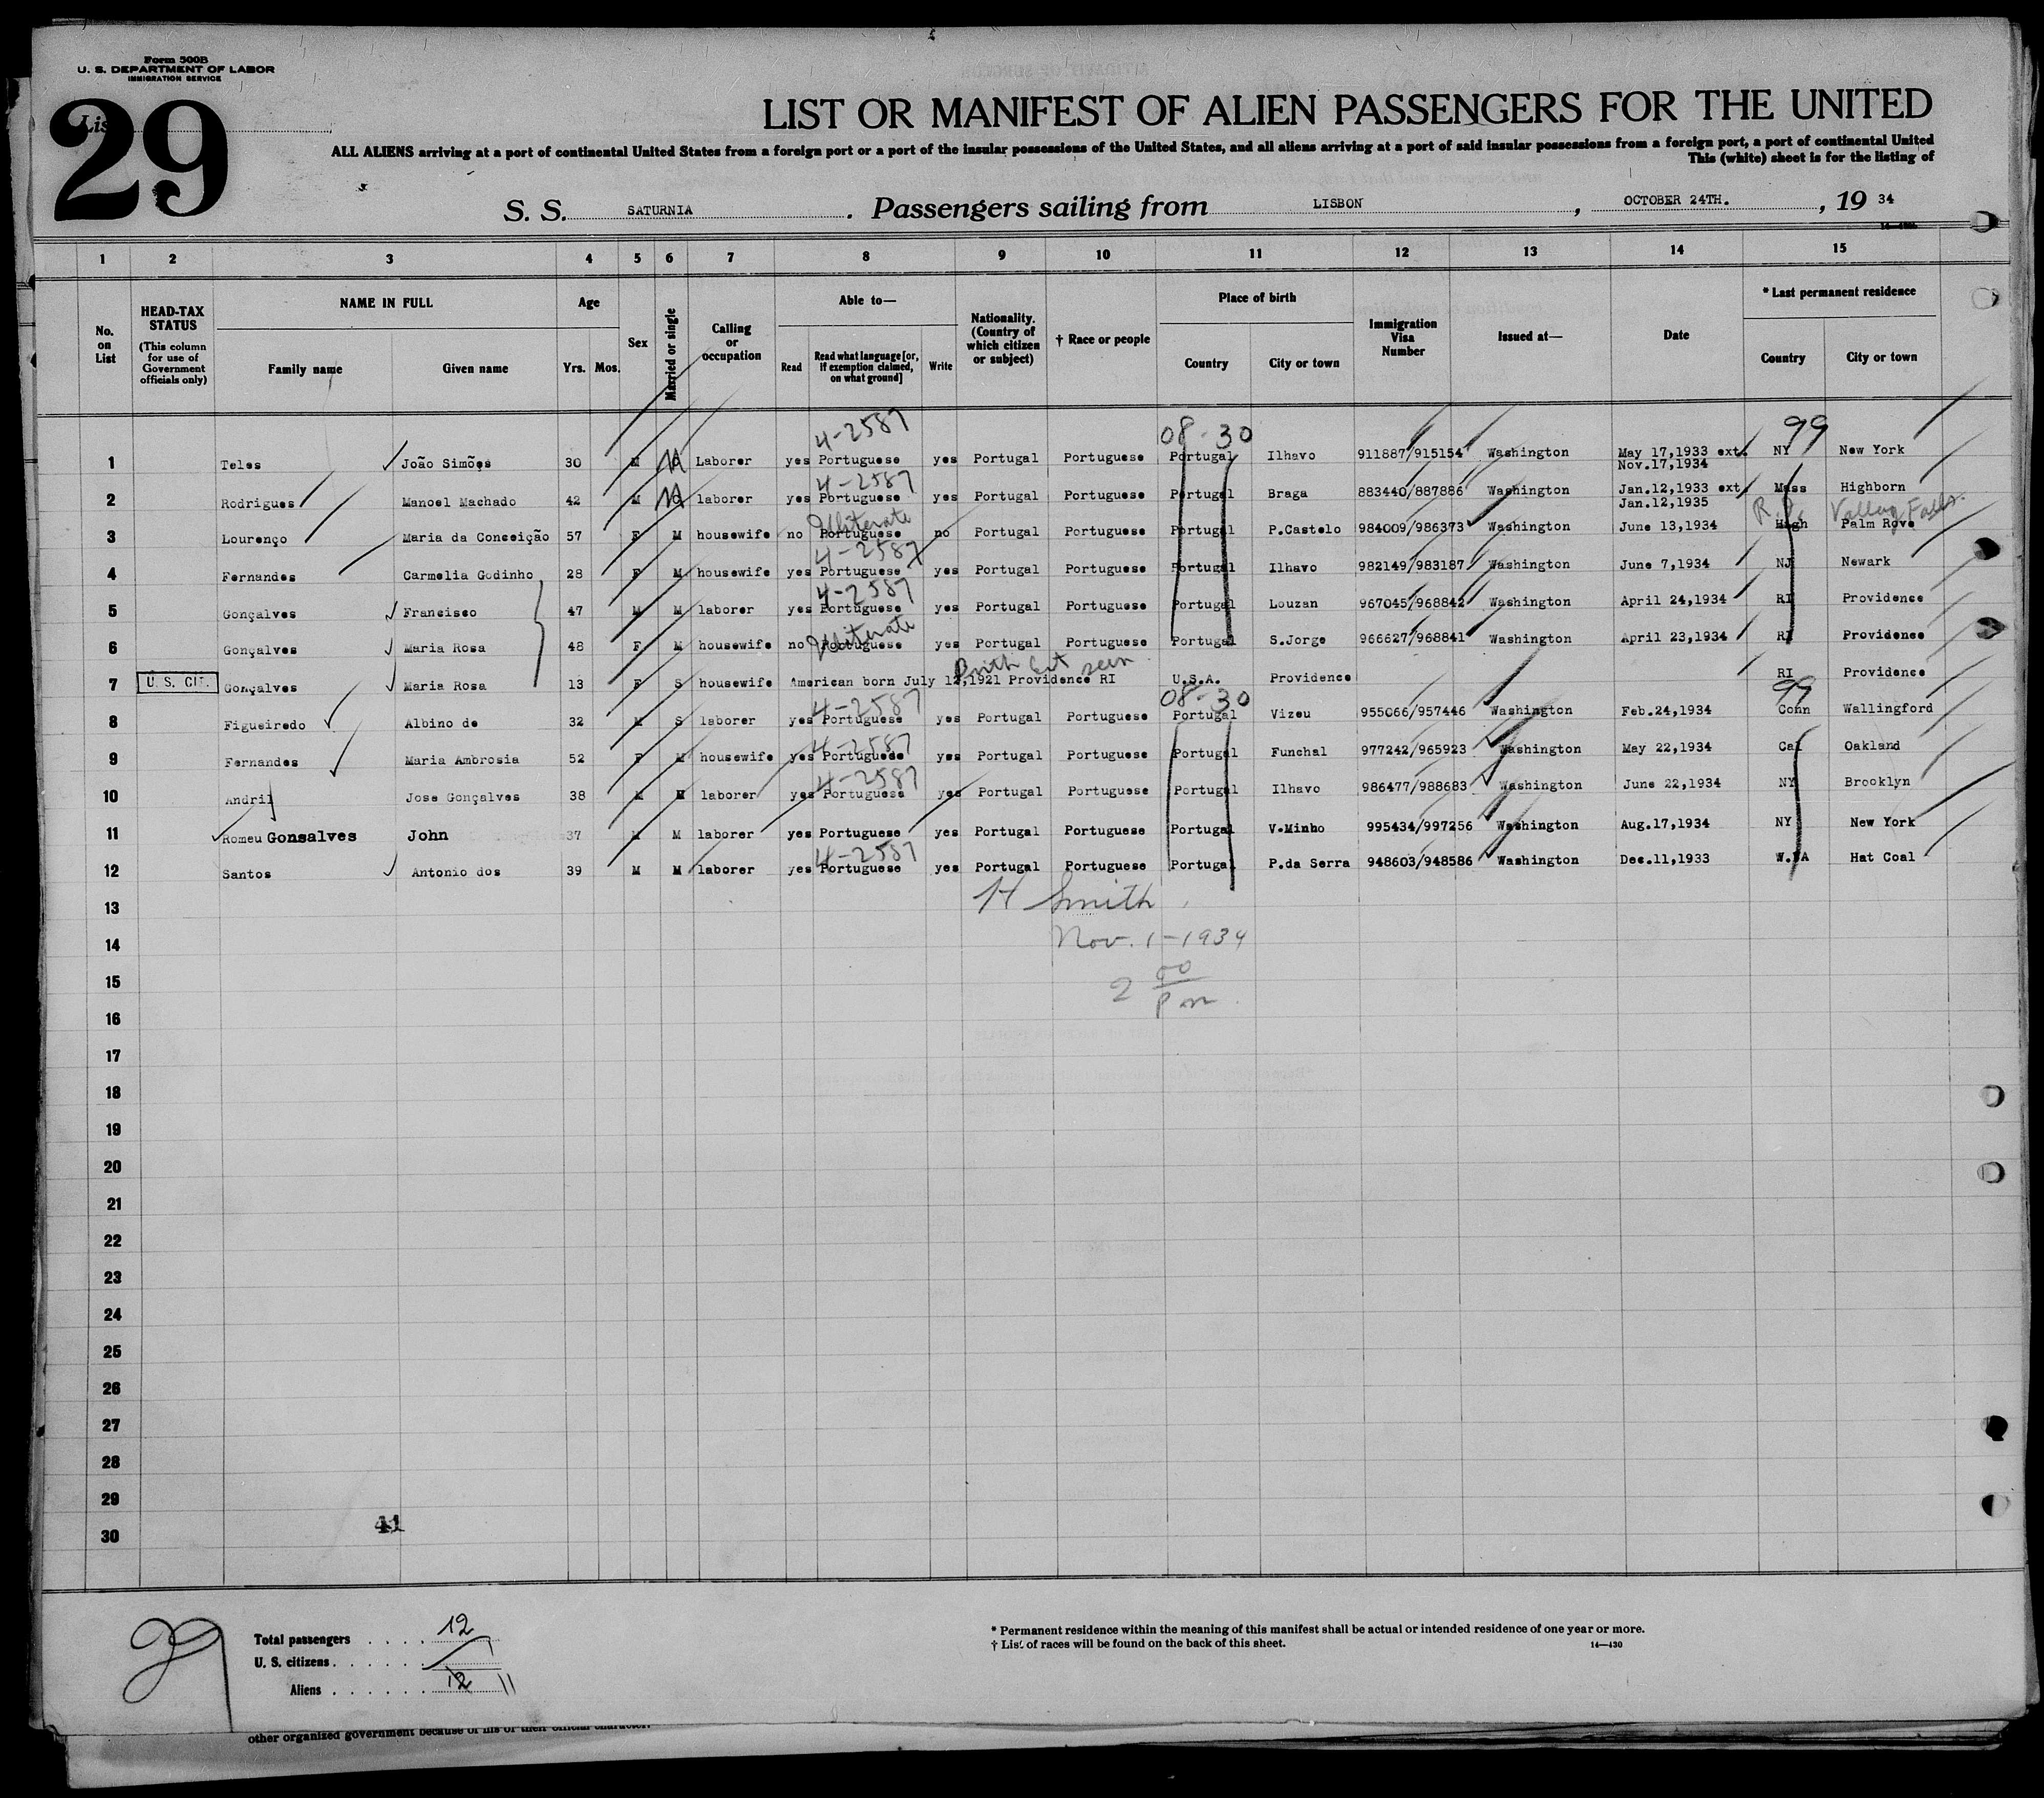 Form 500B
U. S. DEPARTMENT OF LABOR
IMMIGRATION SERVICE
29
LIST OR MANIFEST OF ALIEN PASSENGERS FOR THE UNITED
ALL ALIENS arriving at a port of continental United States from a foreign port or a port of the insular possessions of the United States, and all aliens arriving at a port of said insular possessions from a foreign port, a port of continental United
This (white) sheet is for the listing of
S. S. SATURNIA . Passengers sailing from LISBON , OCTOBER 24TH. , 19 34
1 2 3 4 5 6 7 8 9 10 11 12 13 14 15
No. on List
HEAD-TAX STATUS (This column for use of Government officials only)
NAME IN FULL Family name Given name
Age Yrs. Mos.
Sex
Married or single
Calling or occupation
Able to— Read Read what language [or, if exemption claimed, on what ground] Write
Nationality. (Country of which citizen or subject)
† Race or people
Place of birth Country City or town
Immigration Visa Number
Issued at—
Date
* Last permanent residence Country City or town
4-2587 08-30 99
1 Teles João Simões 30 M M Laborer yes Portuguese yes Portugal Portuguese Portugal Ilhavo 911887/915154 Washington May 17,1933 ext. Nov.17,1934 NY New York
4-2587
2 Rodrigues Manoel Machado 42 M M laborer yes Portuguese yes Portugal Portuguese Portugal Braga 883440/887886 Washington Jan.12,1933 ext. Jan.12,1935 Mass Highborn
Illiterate R.I. Valley Falls.
3 Lourenço Maria da Conceição 57 F M housewife no Portuguese no Portugal Portuguese Portugal P.Castelo 984009/986373 Washington June 13,1934 High Palm Rove
4-2587
4 Fernandes Carmelia Godinho 28 F M housewife yes Portuguese yes Portugal Portuguese Portugal Ilhavo 982149/983187 Washington June 7,1934 NJ Newark
4-2587
5 Gonçalves Francisco 47 M M laborer yes Portuguese yes Portugal Portuguese Portugal Louzan 967045/968842 Washington April 24,1934 RI Providence
Illiterate
6 Gonçalves Maria Rosa 48 F M housewife no Portuguese yes Portugal Portuguese Portugal S.Jorge 966627/968841 Washington April 23,1934 RI Providence
Birth cet seen
7 U. S. CIT. Gonçalves Maria Rosa 13 F S housewife American born July 12,1921 Providence RI U.S.A. Providence RI Providence
4-2587 08-30 99
8 Figueiredo Albino de 32 M S laborer yes Portuguese yes Portugal Portuguese Portugal Vizeu 955066/957446 Washington Feb.24,1934 Conn Wallingford
4-2587
9 Fernandes Maria Ambrosia 52 F M housewife yes Portuguese yes Portugal Portuguese Portugal Funchal 977242/965923 Washington May 22,1934 Cal Oakland
4-2587
10 Andril Jose Gonçalves 38 M M laborer yes Portuguese yes Portugal Portuguese Portugal Ilhavo 986477/988683 Washington June 22,1934 NY Brooklyn
11 Romeu Gonsalves John 37 M M laborer yes Portuguese yes Portugal Portuguese Portugal V.Minho 995434/997256 Washington Aug.17,1934 NY New York
4-2587
12 Santos Antonio dos 39 M M laborer yes Portuguese yes Portugal Portuguese Portugal P.da Serra 948603/948586 Washington Dec.11,1933 W.VA Hat Coal
13 H Smith
14 Nov. 1-1934
15 2 00 pm
16
17
18
19
20
21
22
23
24
25
26
27
28
29
30
41
29
Total passengers . . . . 12
U. S. citizens . . . . . . 1
Aliens . . . . . . 12 11
* Permanent residence within the meaning of this manifest shall be actual or intended residence of one year or more.
† List of races will be found on the back of this sheet. 14—430
other organized government because of his or their official character.